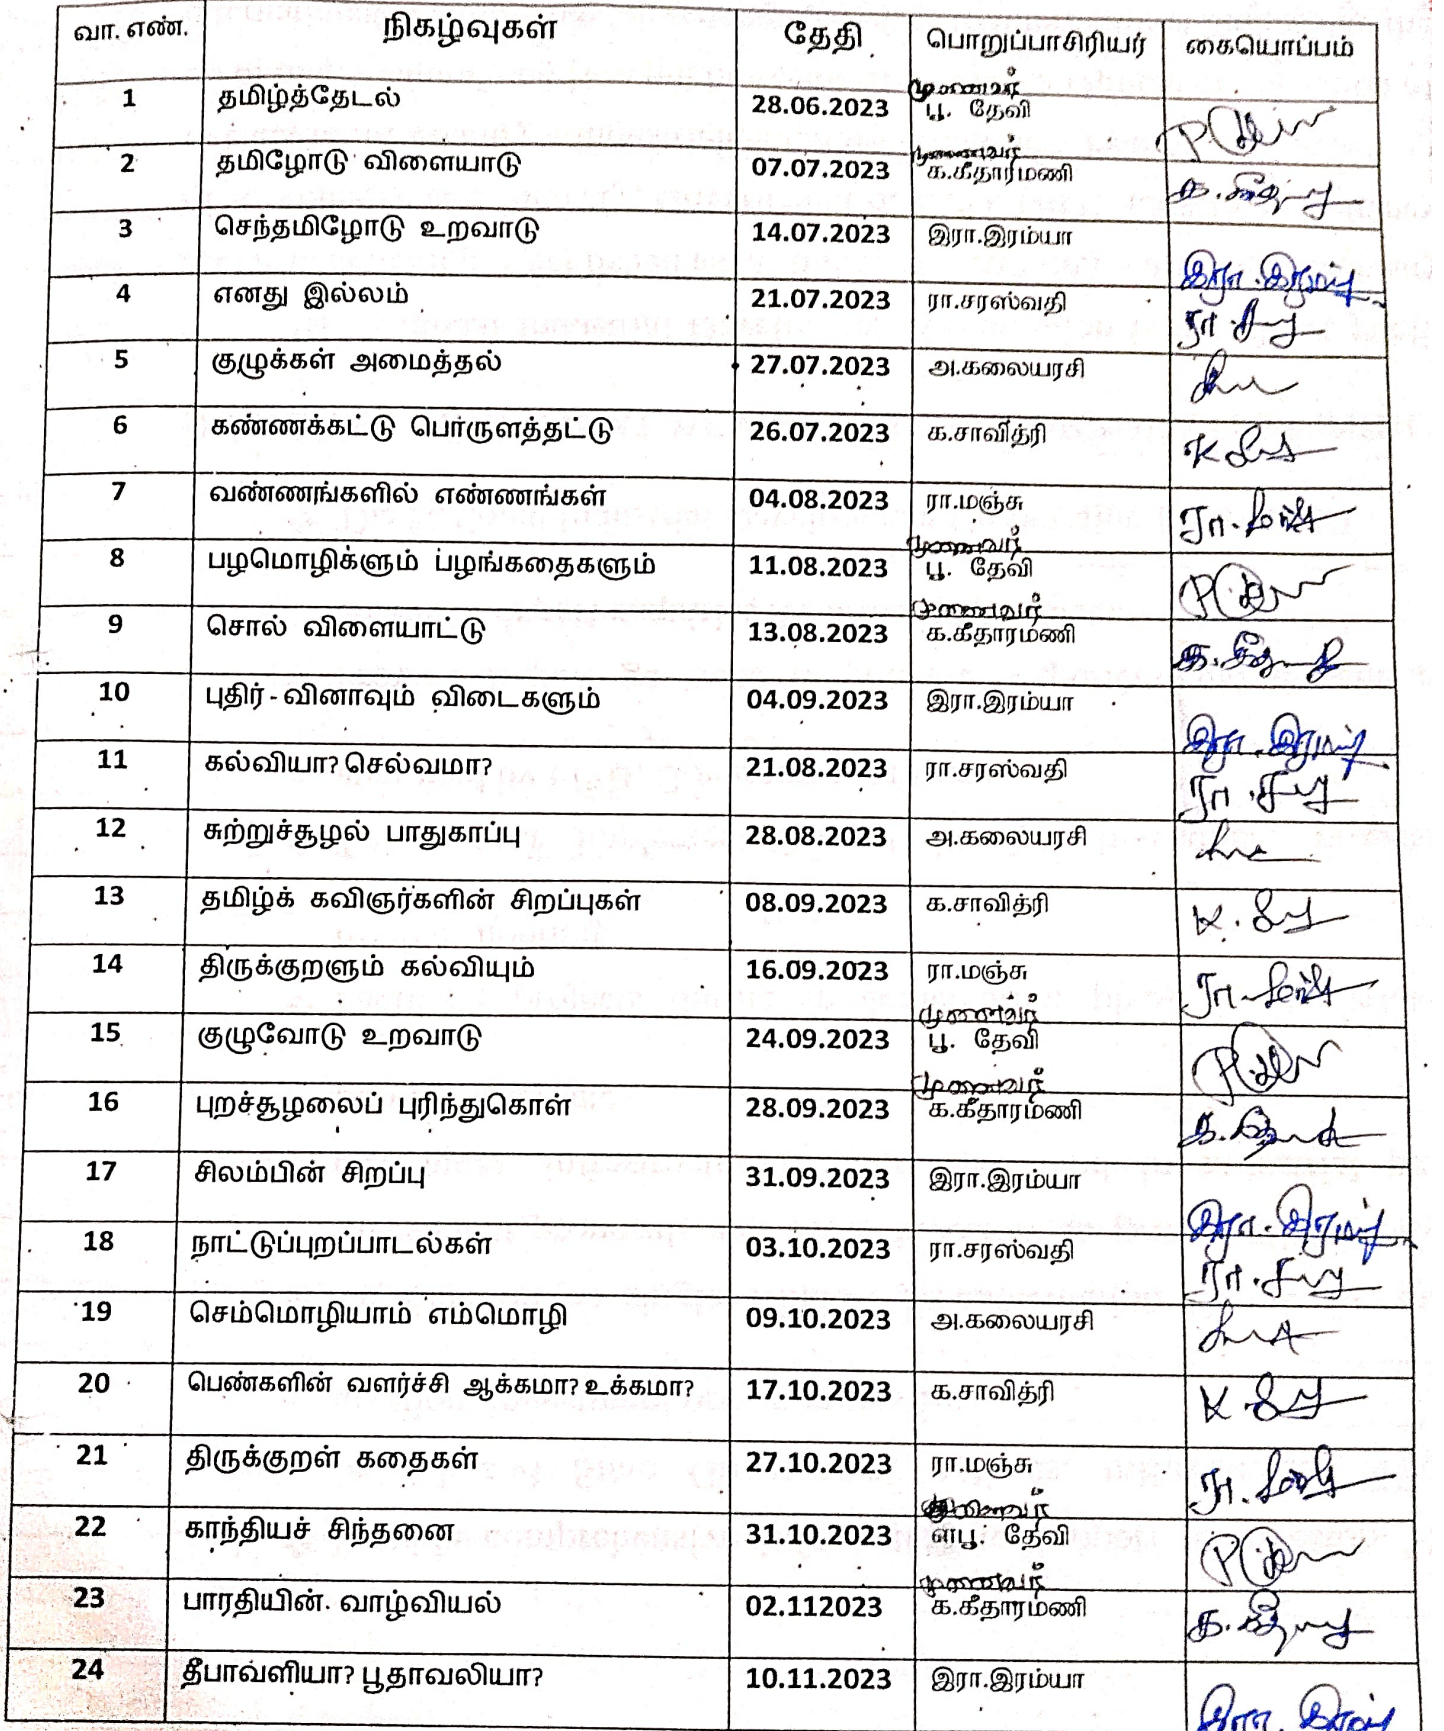 வா. எண். நிகழ்வுகள் தேதி பொறுப்பாசிரியர் கையொப்பம்
முனைவர்
1 தமிழ்த்தேடல் 28.06.2023 பூ. தேவி
முனைவர்
2 தமிழோடு விளையாடு 07.07.2023 க.கீதார்மணி க.கீதா
3 செந்தமிழோடு உறவாடு 14.07.2023 இரா.இரம்யா இரா.இரம்யா
4 எனது இல்லம் 21.07.2023 ரா.சரஸ்வதி
5 குழுக்கள் அமைத்தல் 27.07.2023 அ.கலையரசி
6 கண்ணக்கட்டு பொருளத்தட்டு 26.07.2023 க.சாவித்ரி
7 வண்ணங்களில் எண்ணங்கள் 04.08.2023 ரா.மஞ்சு ரா.மஞ்சு
முனைவர்
8 பழமொழிக்ளும் ப்ழங்கதைகளும் 11.08.2023 பூ. தேவி
முனைவர்
9 சொல் விளையாட்டு 13.08.2023 க.கீதாரம்ணி
10 புதிர் - வினாவும் விடைகளும் 04.09.2023 இரா.இரம்யா இரா.இரம்யா
11 கல்வியா? செல்வமா? 21.08.2023 ரா.சரஸ்வதி
12 சுற்றுச்சூழல் பாதுகாப்பு 28.08.2023 அ.கலையரசி
13 தமிழ்க் கவிஞர்களின் சிறப்புகள் 08.09.2023 க.சாவித்ரி
14 திருக்குறளும் கல்வியும் 16.09.2023 ரா.மஞ்சு ரா.மஞ்சு
முனைவர்
15 குழுவோடு உறவாடு 24.09.2023 பூ. தேவி
முனைவர்
16 புறச்சூழலைப் புரிந்துகொள் 28.09.2023 க.கீதாரம்ணி
17 சிலம்பின் சிறப்பு 31.09.2023 இரா.இரம்யா இரா.இரம்யா
18 நாட்டுப்புறப்பாடல்கள் 03.10.2023 ரா.சரஸ்வதி
19 செம்மொழியாம் எம்மொழி 09.10.2023 அ.கலையரசி
20 பெண்களின் வளர்ச்சி ஆக்கமா? உக்கமா? 17.10.2023 க.சாவித்ரி
21 திருக்குறள் கதைகள் 27.10.2023 ரா.மஞ்சு ரா.மஞ்சு
முனைவர்
22 காந்தியச் சிந்தனை 31.10.2023 ள்பூ. தேவி
முனைவர்
23 பாரதியின் வாழ்வியல் 02.112023 க.கீதாரம்ணி
24 தீபாவ்ளியா? பூதாவலியா? 10.11.2023 இரா.இரம்யா இரா.இரம்யா